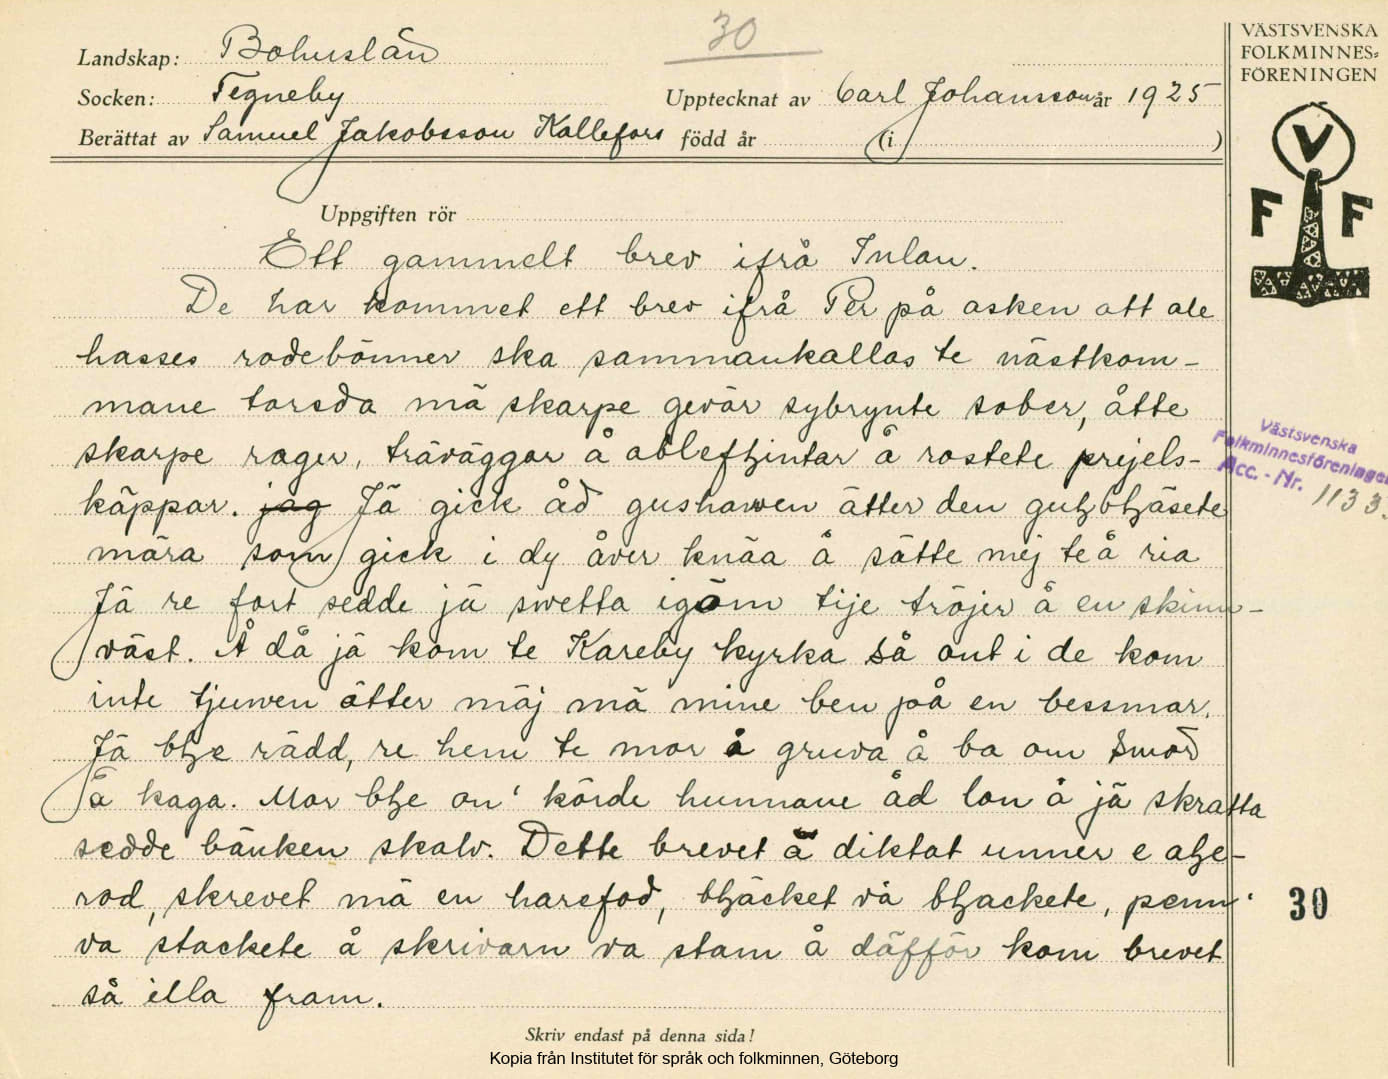 30
VÄSTSVENSKA
FOLKMINNES-
FÖRENINGEN
Landskap: Bohuslän
Socken: Tegneby
Upptecknat av Carl Johansson år 1925
Berättat av Samuel Jakobsson Kallefors född år (i )
V
F F
Uppgiften rör
Ett gammelt brev ifrå Inlan.
De har kommet ett brev ifrå Per på asken att ale
hasses rodebönner ska sammankallas te nästkom-
mane torsda mä skarpe gevär sybrynte sober, åtte
skarpe rager, träväggar å ableftjintar å rostete prejels-
käppar. jag Jä gick åd gushawen ätter den
mära som gick i dy åver knäa å sätte mej te å ria
Jä re fort sedde jä swetta igöm tije tröjer å en skinn-
väst. Å då jä kom te Kareby kyrka så out i de kom
inte tjuwen ätter mäj mä mine ben på en bessmar.
Jä btje rädd, re hem te mor å gruva å ba om smör
å kaga. Mor btje on' körde hunnane åd lon å jä skratta
sedde bänken skalv. Dette brevet ä diktat unner e atje-
rod, skrevet mä en harefod, btjäcket va btjackete, penn'
va stackete å skrivarn va stam å däfför kom brevet
så illa fram.
Västsvenska
Folkminnesföreningen
Acc. - Nr. 1133.
30
Skriv endast på denna sida!
Kopia från Institutet för språk och folkminnen, Göteborg